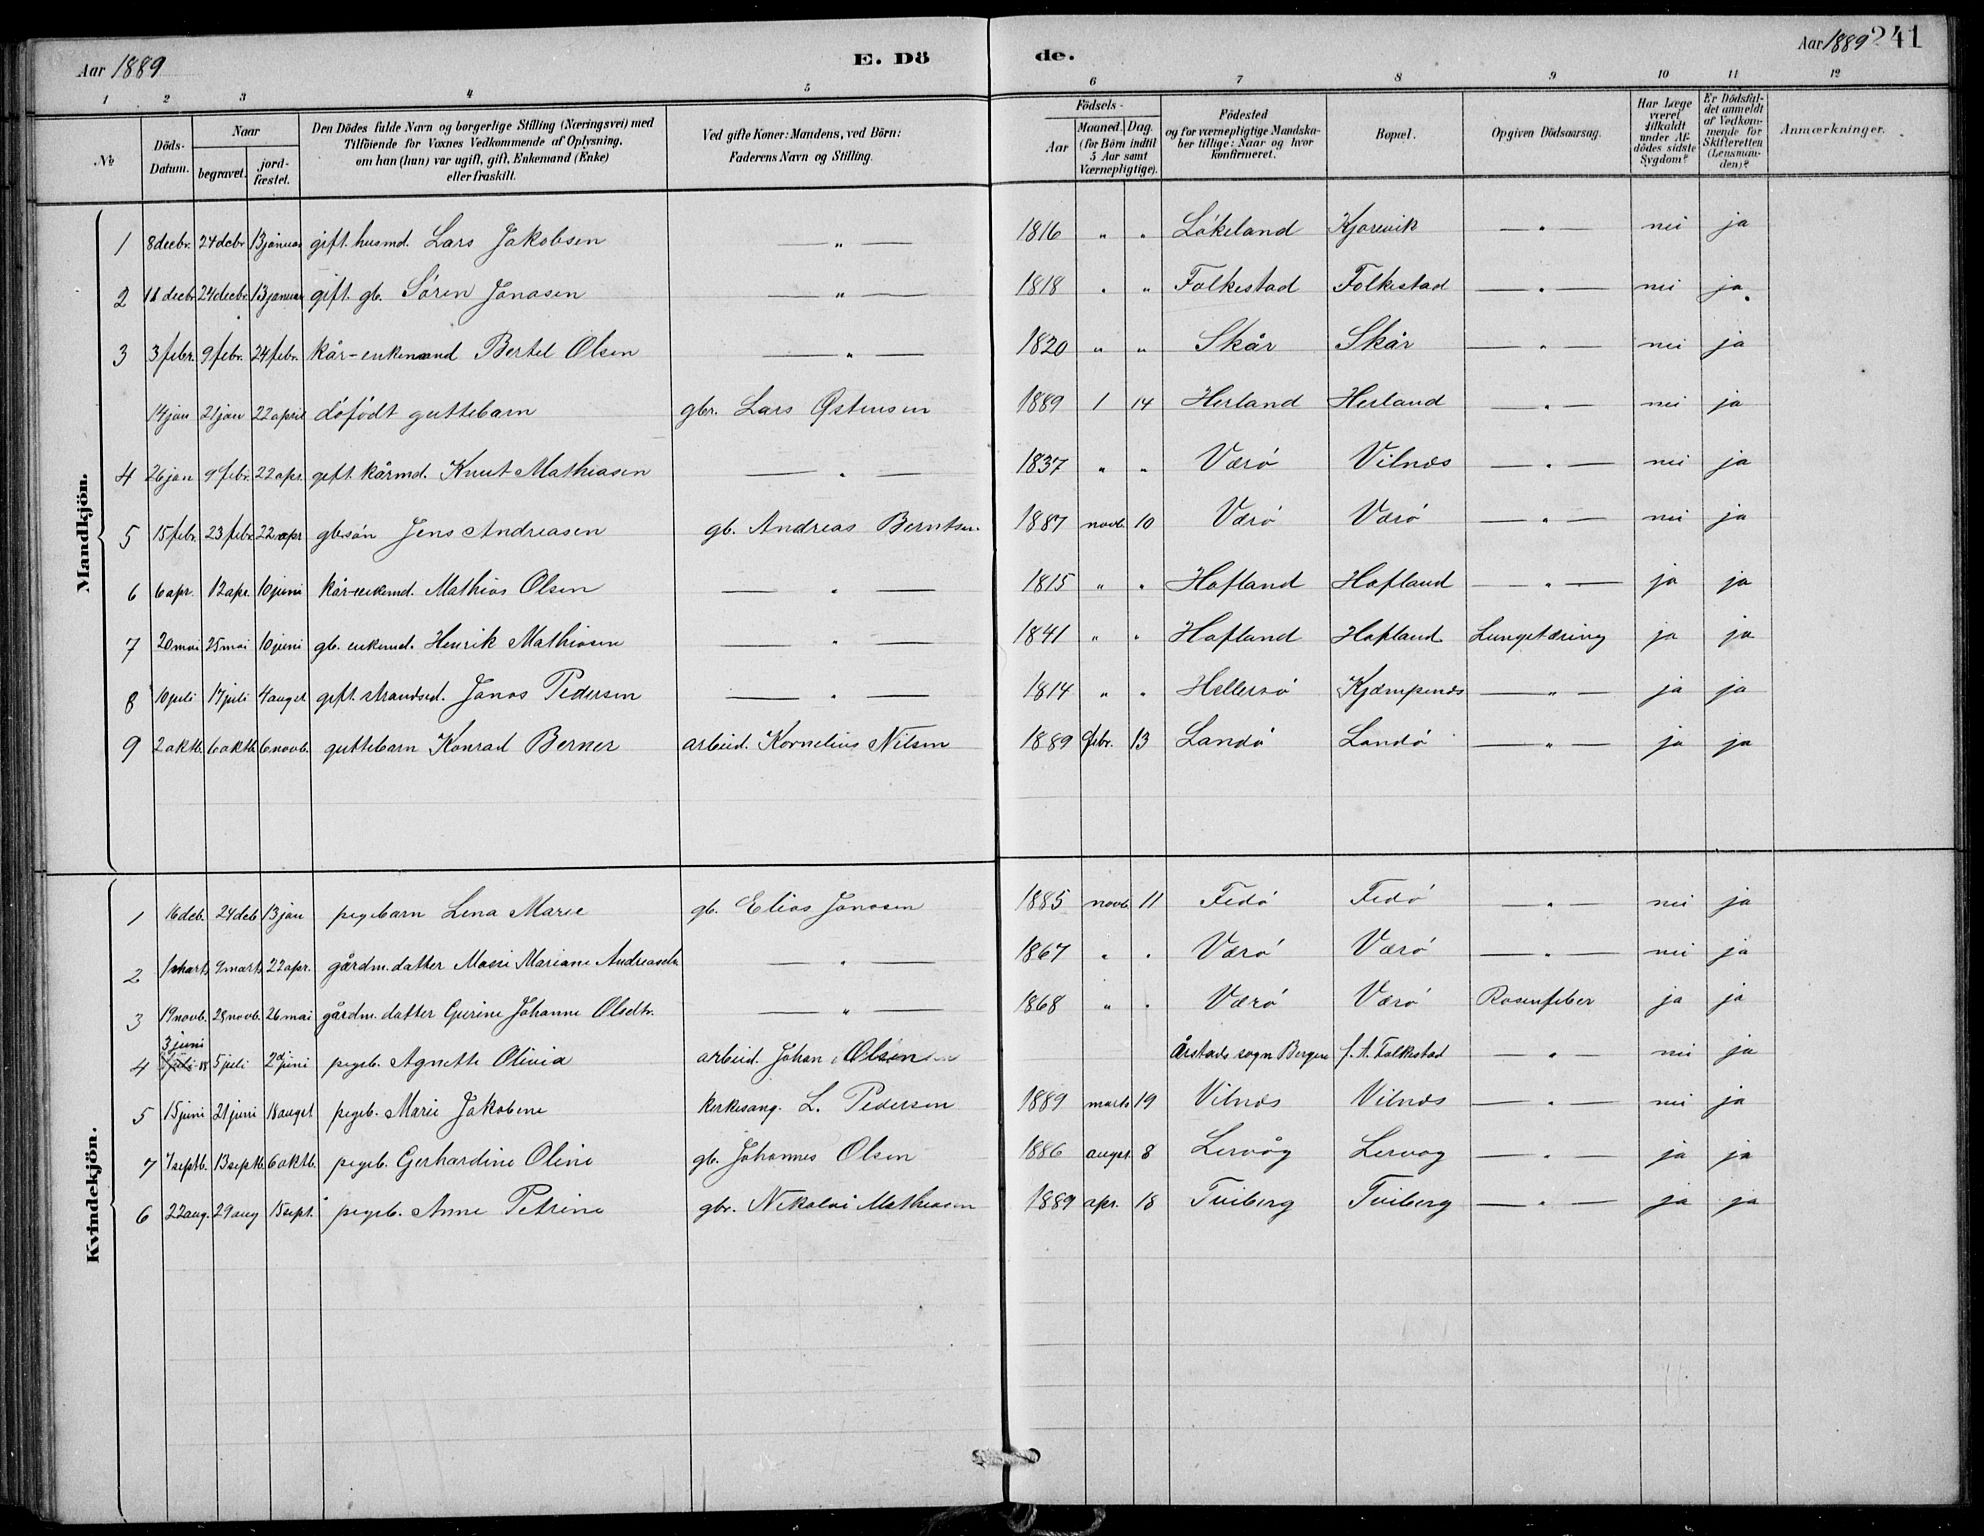 Aar 1889 E. Dö de. Aar 1889 241
1 2 3 4 5 6 7 8 9 10 11 12
№
Döds-Datum.
Naar
begravet.
jord-fæstet.
Den Dödes fulde Navn og borgerlige Stilling (Næringsvei) med
Tilföiende for Voxnes Vedkommende af Oplysning,
om han (hun) var ugift, gift, Enkemand (Enke)
eller fraskilt.
Ved gifte Koner: Mandens, ved Börn:
Faderens Navn og Stilling.
Födsels-
Aar
Maaned. Dag.
(for Börn indtil
5 Aar samt
Værnepligtige).
Födested
og for værnepligtige Mandska-
ber tillige: Naar og hvor
konfirmeret.
Bopæl.
Opgiven Dödsaarsag.
Har Læge
været
tilkaldt
under Af-
dödes sidste
Sygdom?
Er Dödsfal-
det anmeldt
af Vedkom-
mende for
Skifteretten
(Lensman-
den)?
Anmærkninger.
Mandkjön.
1 8 decbr. 24 decbr. 13 januar gift. husmd. Lars Jakobsen — " — 1816 " " Lökeland Kjorevik — " — nei ja
2 18 decbr. 24 decbr. 13 januar gift. gb. Sören Jonasen — " — 1818 " " Folkestad Folkestad — " — nei ja
3 3 febr. 9 febr. 24 febr. kår-enkemand Bertel Olsen — " — 1820 " " Skår Skår — " — nei ja
14 jan 21 jan 22 april döfödt guttebarn gbr. Lars Østensen 1889 1 14 Herland Herland — " — nei ja
4 26 jan 9 febr. 22 apr. gift. kårmd. Knut Mathiasen — " — 1837 " " Værö Vilnæs — " — nei ja
5 15 febr. 23 febr. 22 apr gb.sön Jens Andreasen gb. Andreas Berntsen 1887 novb. 10 Værö Værö — " — nei ja
6 6 apr. 12 apr. 10 juni kår-enkemd. Mathias Olsen — " — 1815 " " Hafland Hafland — " — ja ja
7 20 mai 25 mai 10 juni gb. enkemd. Henrik Mathiasen — " — 1841 " " Hafland Hafland Lungetæring ja ja
8 10 juli 17 juli 4 augst gift. strandsd. Jonas Pedersen — " — 1814 " " Hellersö Kjæmpenæs — " — ja ja
9 2 oktb. 6 oktb. 6 novb. guttebarn Konrad Berner arbeid. Kornelius Nilsen 1889 febr. 13 Landö Landö — " — ja ja
Kvindekjön.
1 16 deb. 24 deb 13 jan pigebarn Lena Marie gb. Elias Jonasen 1885 novb. 11 Fedö Fedö — " — nei ja
2 1 marts 9 marts 22 apr. gårdm. datter Marie Mariane Andreasdt. — " — 1867 " " Værö Værö — " — nei ja
3 19 novb. 28 novb. 26 mai gårdm. datter Gurine Johanne Olsdtr. — " — 1868 " " Værö Værö Rosenfeber ja ja
3 juni
4 5 juli 2d juni pigeb. Agnette Olivia arbeid. Johan Olsen Årstads sogn Bergen f. t. Folkestad " nei ja
5 15 juni 21 juni 18 augst pigeb. Marie Jakobine kirkesang. L. Pedersen 1889 marts 19 Vilnæs Vilnæs — " — nei ja
7 7 septb. 13 septb. 6 oktb. pigeb. Gerhardine Oline gb. Johannes Olsen 1886 augst. 8 Lervåg Lervag — " — ja ja
6 22 aug. 29 aug 15 sept. pigeb. Anne Petrine gbr. Nikolai Mathiasen 1889 apr. 18 Tviberg Tviberg — " — ja ja